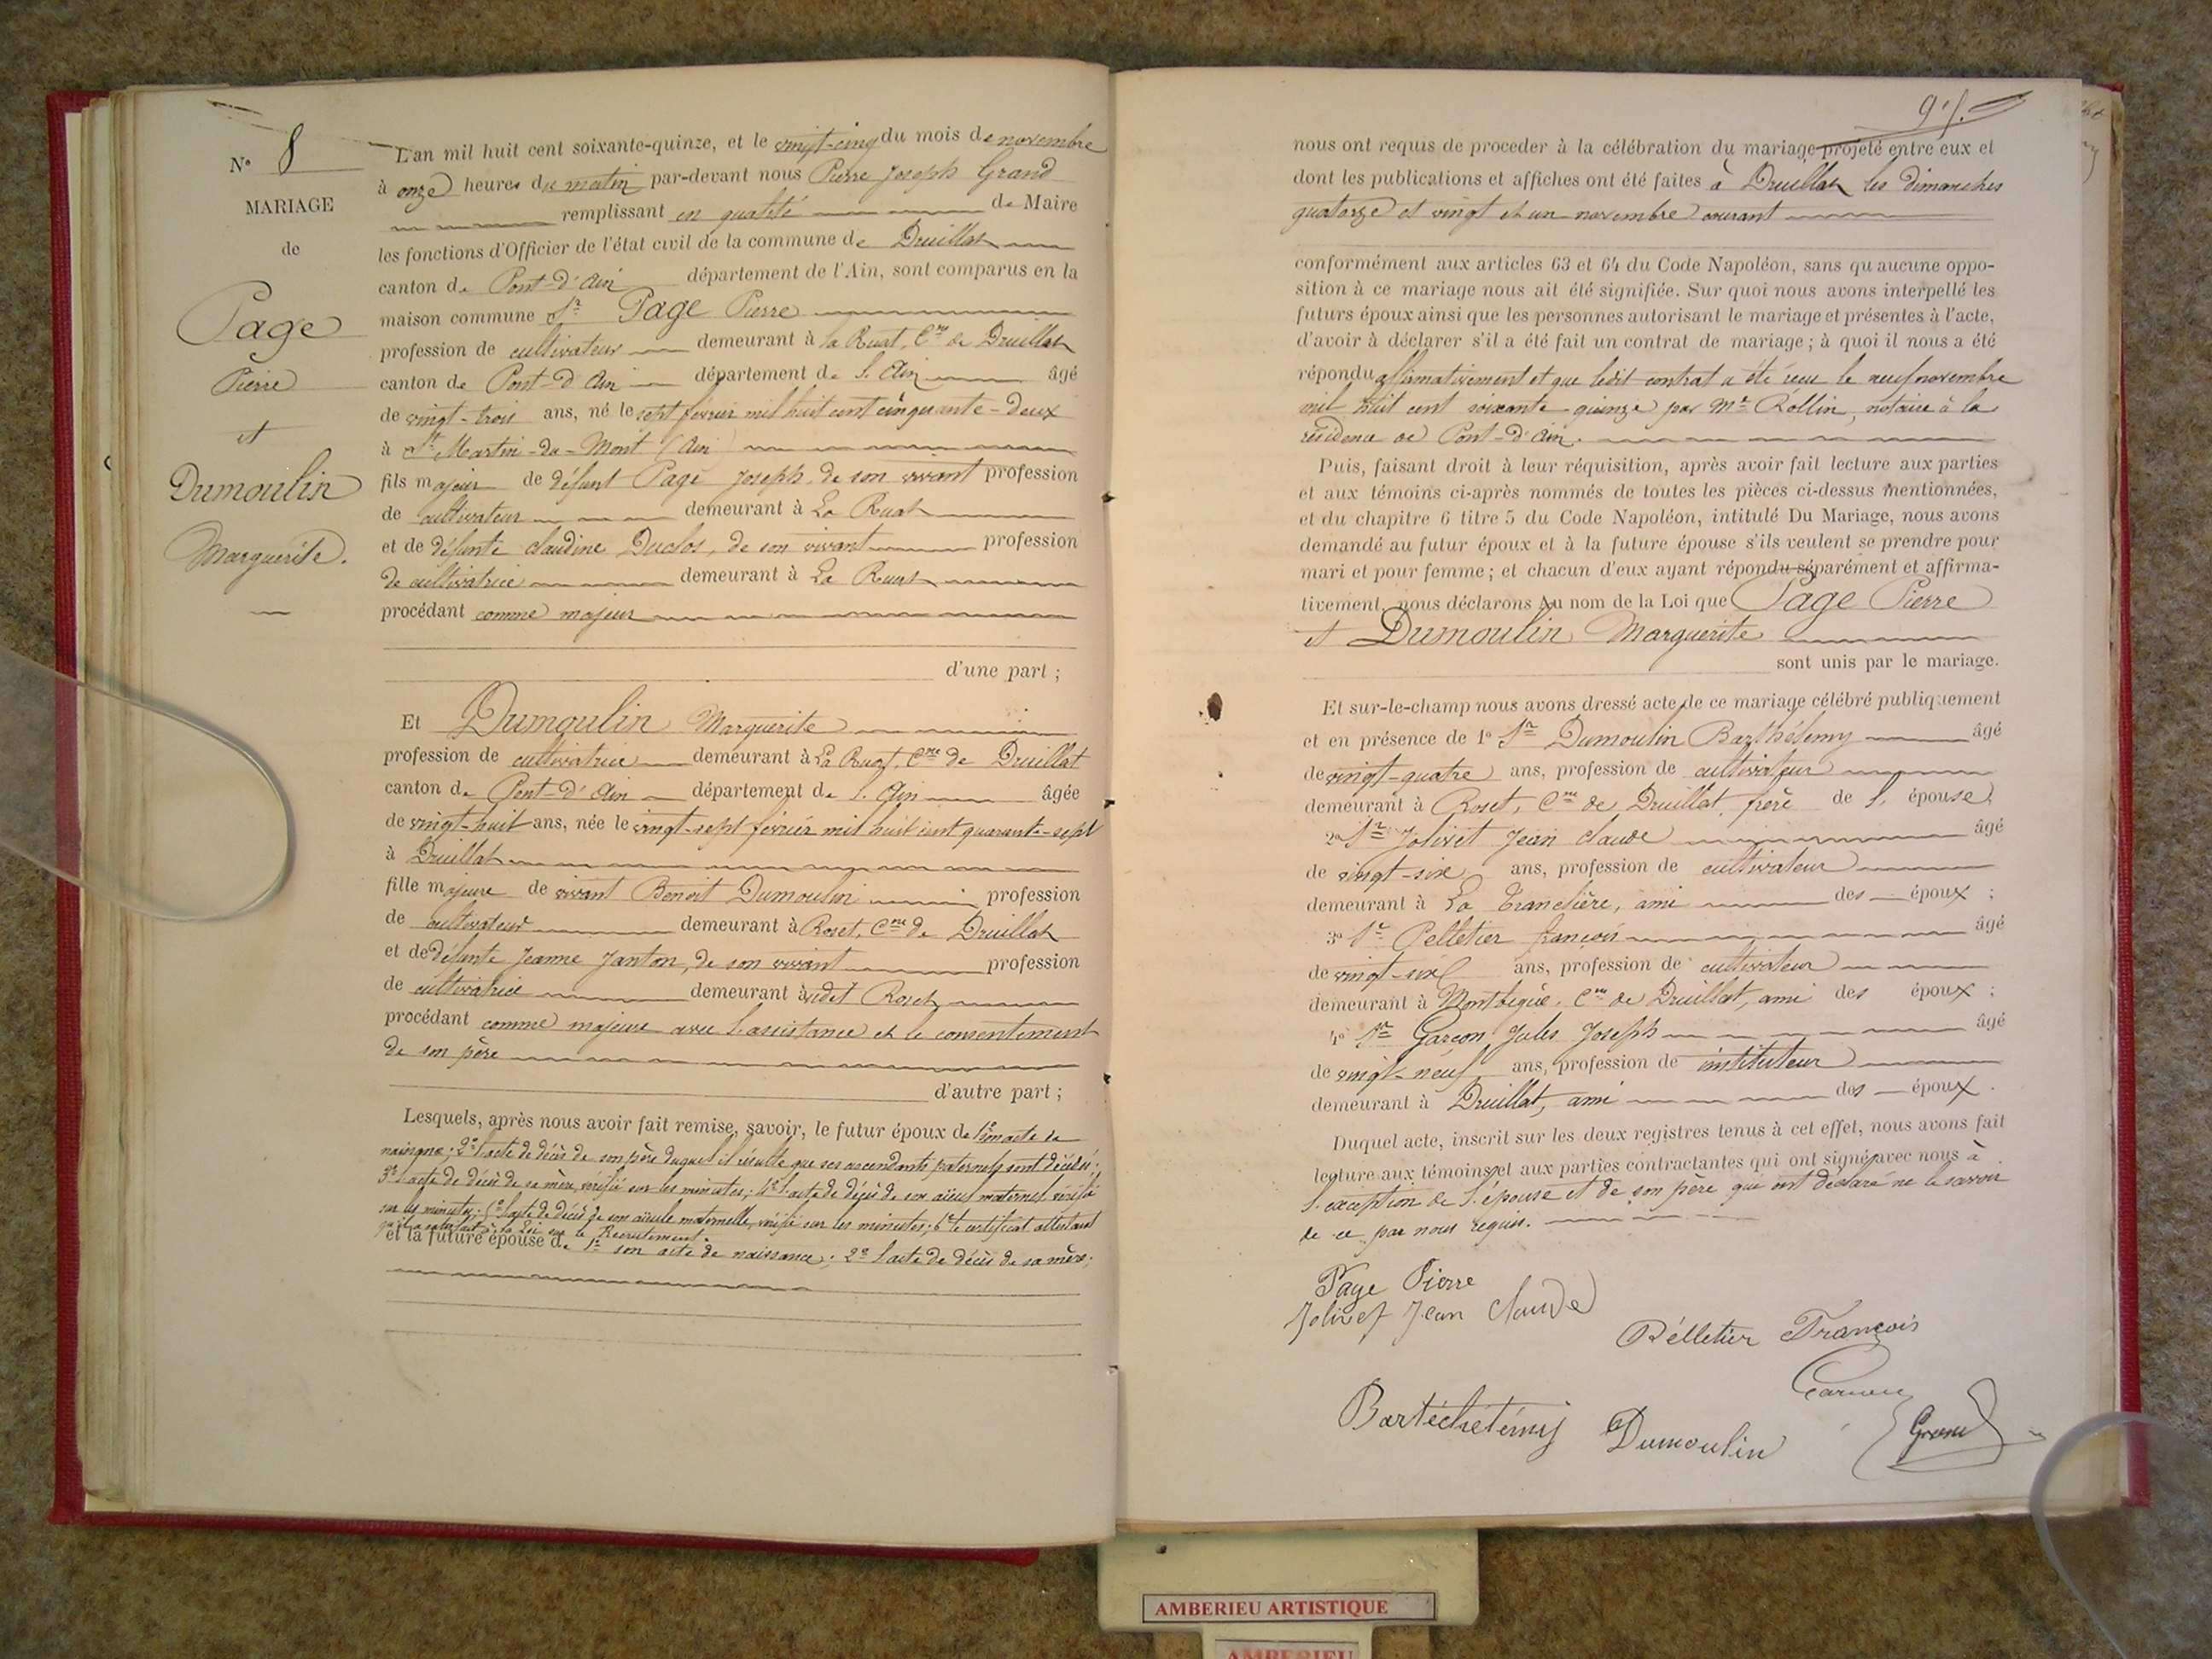 N° 8
MARIAGE
de
Page
Pierre
et
Dumoulin
Marguerite.
L'an mil huit cent soixante-quinze, et le vingt-cinq du mois de novembre
à onze heures du matin par-devant nous Pierre Joseph Grand
remplissant en qualité de Maire
les fonctions d'Officier de l'état civil de la commune de Druillat
canton de Pont-d'Ain département de l'Ain, sont comparus en la
maison commune Sr Page Pierre
profession de cultivateur demeurant à la Ruat, Cne de Druillat
canton de Pont-d'Ain département de l'Ain âgé
de vingt-trois ans, né le sept février mil huit cent cinquante-deux
à St Martin-du-Mont (Ain)
fils majeur de défunt Page Joseph, de son vivant profession
de cultivateur demeurant à La Ruat
et de défunte Claudine Duclos, de son vivant profession
de cultivatrice demeurant à La Ruat
procédant comme majeur
d'une part ;
Et Dumoulin Marguerite
profession de cultivatrice demeurant à La Ruat, Cne de Druillat
canton de Pont-d'Ain département de l'Ain âgée
de vingt-huit ans, née le vingt-sept février mil huit cent quarante-sept
à Druillat
fille majeure de vivant Benoit Dumoulin profession
de cultivateur demeurant à Roset, Cne de Druillat
et de défunte Jeanne Janton, de son vivant profession
de cultivatrice demeurant à udit Roset
procédant comme majeure avec l'assistance et le consentement
de son père
d'autre part ;
Lesquels, après nous avoir fait remise, savoir, le futur époux de 1° son acte de
naissance ; 2° l'acte de décès de son père duquel il résulte que ses ascendants paternels sont décédés ;
3° l'acte de décès de sa mère, vérifié sur les minutes ; 4° l'acte de décès de son aïeul maternel vérifié
sur les minutes ; 5° l'acte de décès de son aïeule maternelle, vérifié sur les minutes ; 6° le certificat attestant
qu'il a satisfait à la Loi sur le Recrutement.
et la future épouse de 1° son acte de naissance ; 2° l'acte de décès de sa mère ;
nous ont requis de proceder à la célébration du mariage projeté entre eux et
dont les publications et affiches ont été faites à Druillat les dimanches
quatorze et vingt et un novembre courant
conformément aux articles 63 et 64 du Code Napoléon, sans qu'aucune oppo-
sition à ce mariage nous ait été signifiée. Sur quoi nous avons interpellé les
futurs époux ainsi que les personnes autorisant le mariage et présentes à l'acte,
d'avoir à déclarer s'il a été fait un contrat de mariage ; à quoi il nous a été
répondu affirmativement et que ledit contrat a été reçu le neuf novembre
mil huit cent soixante-quinze par Me Rollin, notaire à la
résidence de Pont-d'Ain.
Puis, faisant droit à leur réquisition, après avoir fait lecture aux parties
et aux témoins ci-après nommés de toutes les pièces ci-dessus mentionnées,
et du chapitre 6 titre 5 du Code Napoléon, intitulé Du Mariage, nous avons
demandé au futur époux et à la future épouse s'ils veulent se prendre pour
mari et pour femme ; et chacun d'eux ayant répondu séparément et affirma-
tivement, nous déclarons Au nom de la Loi que Page Pierre
et Dumoulin Marguerite
sont unis par le mariage.
Et sur-le-champ nous avons dressé acte de ce mariage célébré publiquement
et en présence de 1° Sr Dumoulin Barthélemy âgé
de vingt-quatre ans, profession de cultivateur
demeurant à Roset, Cne de Druillat, frère de l'épouse,
2° Sr Jolivet Jean Claude âgé
de vingt-six ans, profession de cultivateur
demeurant à La Tranclière, ami des époux ;
3° Sr Pelletier françois âgé
de vingt-six ans, profession de cultivateur
demeurant à Montbègue, Cne de Druillat, ami des époux ;
4° Sr Garçon Jules Joseph âgé
de vingt-neuf ans, profession de instituteur
demeurant à Druillat, ami des époux.
Duquel acte, inscrit sur les deux registres tenus à cet effet, nous avons fait
lecture aux témoins et aux parties contractantes qui ont signé avec nous à
l'exception de l'épouse et de son père qui ont déclaré ne le savoir
de ce par nous requis.
Page Pierre
Jolivet Jean Claude
Pélletier François
Bartéchélémy Dumoulin
Grand
AMBERIEU ARTISTIQUE
AMBERIEU